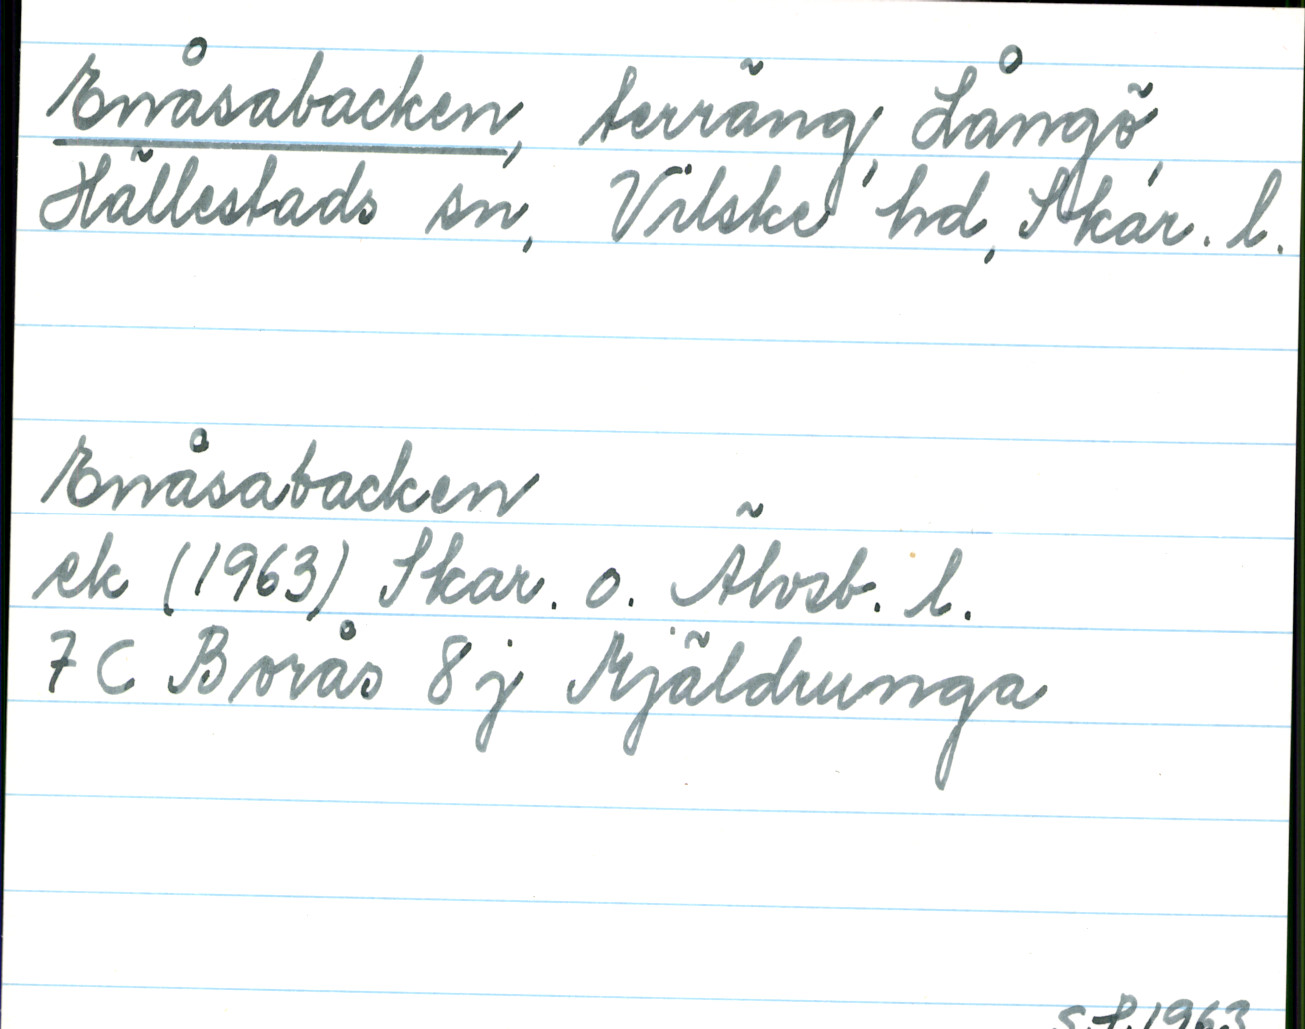 Enåsabacken, terräng, Långö,
Hällestads sn, Vilske hd, Skar. l.
Enåsabacken
ek (1963) Skar. o. Älvsb. l.
7 C Borås 8 j Mjäldrunga
S.P. 1963